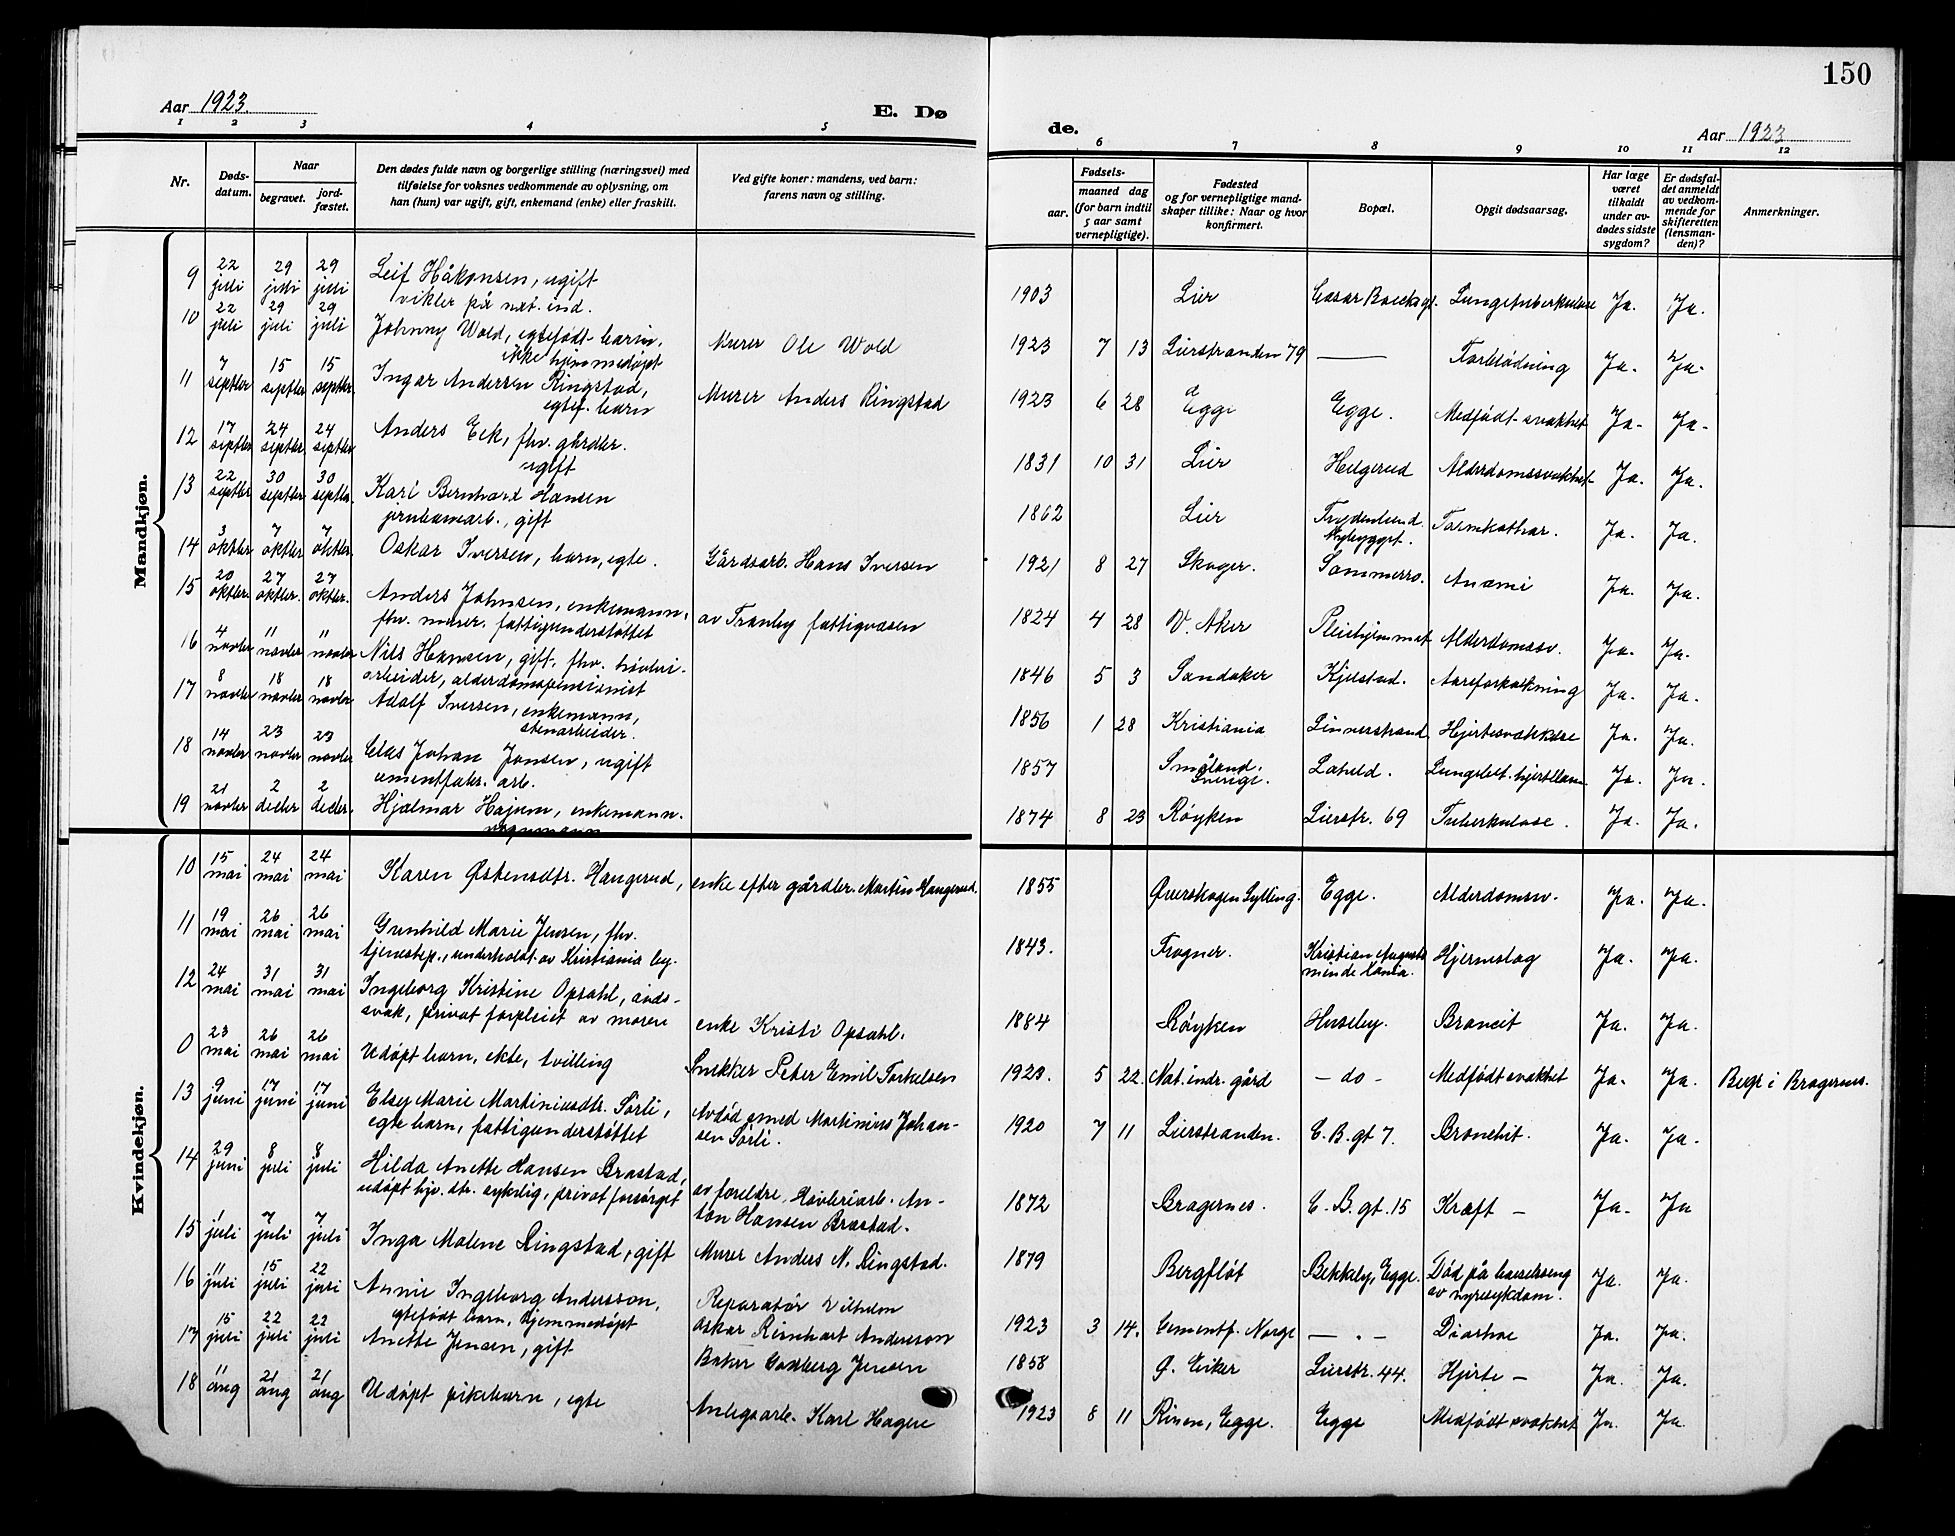 150
Aar 1923.
E. Dø
de.
Aar 1923
1 2 3 4 5 6 7 8 9 10 11 12
Nr.
Døds-
datum.
Naar
begravet.
jord-
fæstet.
Den dødes fulde navn og borgerlige stilling (næringsvei) med
tilføielse for voksnes vedkommende av oplysning, om
han (hun) var ugift, gift, enkemand (enke) eller fraskilt.
Ved gifte koner: mandens, ved barn:
farens navn og stilling.
Fødsels-
aar.
maaned dag
(for barn indtil
5 aar samt
vernepligtige).
Fødested
og for vernepligtige mand-
skaper tillike: Naar og hvor
konfirmert.
Bopæl.
Opgit dødsaarsag.
Har læge
været
tilkaldt
under av-
dødes sidste
sygdom?
Er dødsfal-
det anmeldt
av vedkom-
mende for
skifteretten
(lensman-
den)?
Anmerkninger.
Mandkjøn.
9 22 juli 29 juli 29 juli Leif Håkonsen, ugift
vikler på nat. ind.
1903 Lier Lungetuberkulose Ja. Ja.
10 22 juli 29 juli 29 juli Johnny Wold, egtefødt barn,
ikke hjemmedøpt
Murer Ole Wold 1923 7 13 Lierstranden 79 — Forblødning Ja. Ja.
11 7 septbr 15 septbr 15 septbr. Ingar Andersen Ringstad,
egtef. barn
Murer Anders Ringstad 1923 6 28 Egge Egge. Medfødt svakhet Ja. Ja.
12 17 septbr 24 septbr 24 septbr. Anders Eek, fhv. gårdbr.
ugift
1831 10 31 Lier Helgerud Alderdomssvakhet Ja. Ja.
13 22 septbr 30 septbr 30 septbr. Karl Bernhard Hansen
jernbanearb., gift
1862 Lier Frydenlund Nybygget. Tarmkathar. Ja. Ja.
14 3 oktbr 7 oktbr 7 oktbr. Oskar Iversen, barn, egte. Gårdsarb. Hans Iversen 1921 8 27 Skoger. Sommerro. Anæmi Ja. Ja.
15 20 oktbr. 27 oktbr. 27 oktbr. Anders Johnsen, enkemann,
fhv. murer, fattigunderstøttet
av Tranby fattigvæsen 1824 4 28 V. Aker Pleiehjemmet Alderdomssv. Ja. Ja.
16 4 novbr 11 novbr 11 novbr Nils Hansen, gift, fhv. høvleri-
arbeider, alderdomspensionist
1846 5 3 Sandaker Kjelstad. Aareforkalkning Ja. Ja.
17 8 novbr 18 novbr 18 novbr. Adolf Iversen, enkemann,
stenarbeider.
1856 1 28 Kristiania Linnerstrand Hjertesvækkelse Ja. Ja.
18 14 novbr 23 novbr 23 novbr Claes Johan Jonsen, ugift
cementfabr. arb.
1857 Småland, Sverige. Laheld. Ja. Ja.
19 21 novbr 2 decbr 2 decbr. Hjalmar Hajum, enkemann.
vognmann
1874 8 23 Røyken Lierstr. 69 Tuberkulose. Ja. Ja.
Kvindekjøn.
10 15 mai 24 mai 24 mai Karen Østensdtr. Haugerud, enke efter gårdbr. Martin Haugerud.
1855 Øverskogen Sylling. Egge. Alderdomssv. Ja. Ja.
11 19 mai 26 mai 26 mai Gunhild Marie Jensen, fhv.
tjenestep., underholdt av Kristiania by.
1843. Frogner. Kristian Augusts minde Hjerneslag Ja. Ja.
12 24 mai 31 mai 31 mai Ingeborg Kristine Opsahl, ånds-
svak, privat forpleiet av moren
enke Kristi Opsahl. 1884 Røyken Huseby. Broncit Ja. Ja.
0 23 mai 26 mai 26 mai Udøpt barn, ekte, tvilling Snekker Peter Emil Torkelsen
1923. 5 22. Nat. indr. gård — do — Medfødt svakhet Ja. Ja. Begr i Bragernes.
13 9 juni 17 juni 17 juni Elsy Marie Martiniusdtr. Sørli,
egte barn, fattigunderstøttet
Avdød smed Martinius Johan-
sen Sørli.
1920 7 11 Lierstranden. C. B. gt 7. Bronchit. Ja. Ja.
14 29 juni 8 juli 8 juli Hilda Anette Hansen Brastad,
udøpt hjv. dtr. sykelig, privat forsørget
av foreldre. Høvleriarb. An-
ton Hansen Brastad.
1872 Bragernes. C. B. gt. 15 Kræft — Ja. Ja
15 1 juli 7 juli 7 juli Inga Malene Ringstad, gift Murer Anders N. Ringstad.
1879 Bergfløt Bekkely, Egge. Død på barselseng
av nyresykdom. Ja. Ja.
16 11 juli 15 juli 22 juli Annie Ingeborg Andersson,
egtefødt barn, hjemmedøpt
Reparatør Vilhelm
Oskar Reinhart Andersson
1923 3 14. Cementf. Norge — " — Diarhoe Ja. Ja.
17 15 juli 22 juli 22 juli Anette Jensen, gift Baker Jensen
1858 Ø. Eiker Lierstr. 44. Hjerte — Ja. Ja.
18 11 aug 21 aug 21 aug Udøpt pikebarn, egte Anlegsarb. Karl Hagen
1923 8 11 Egge. Egge Medfødt svakhet Ja. Ja.